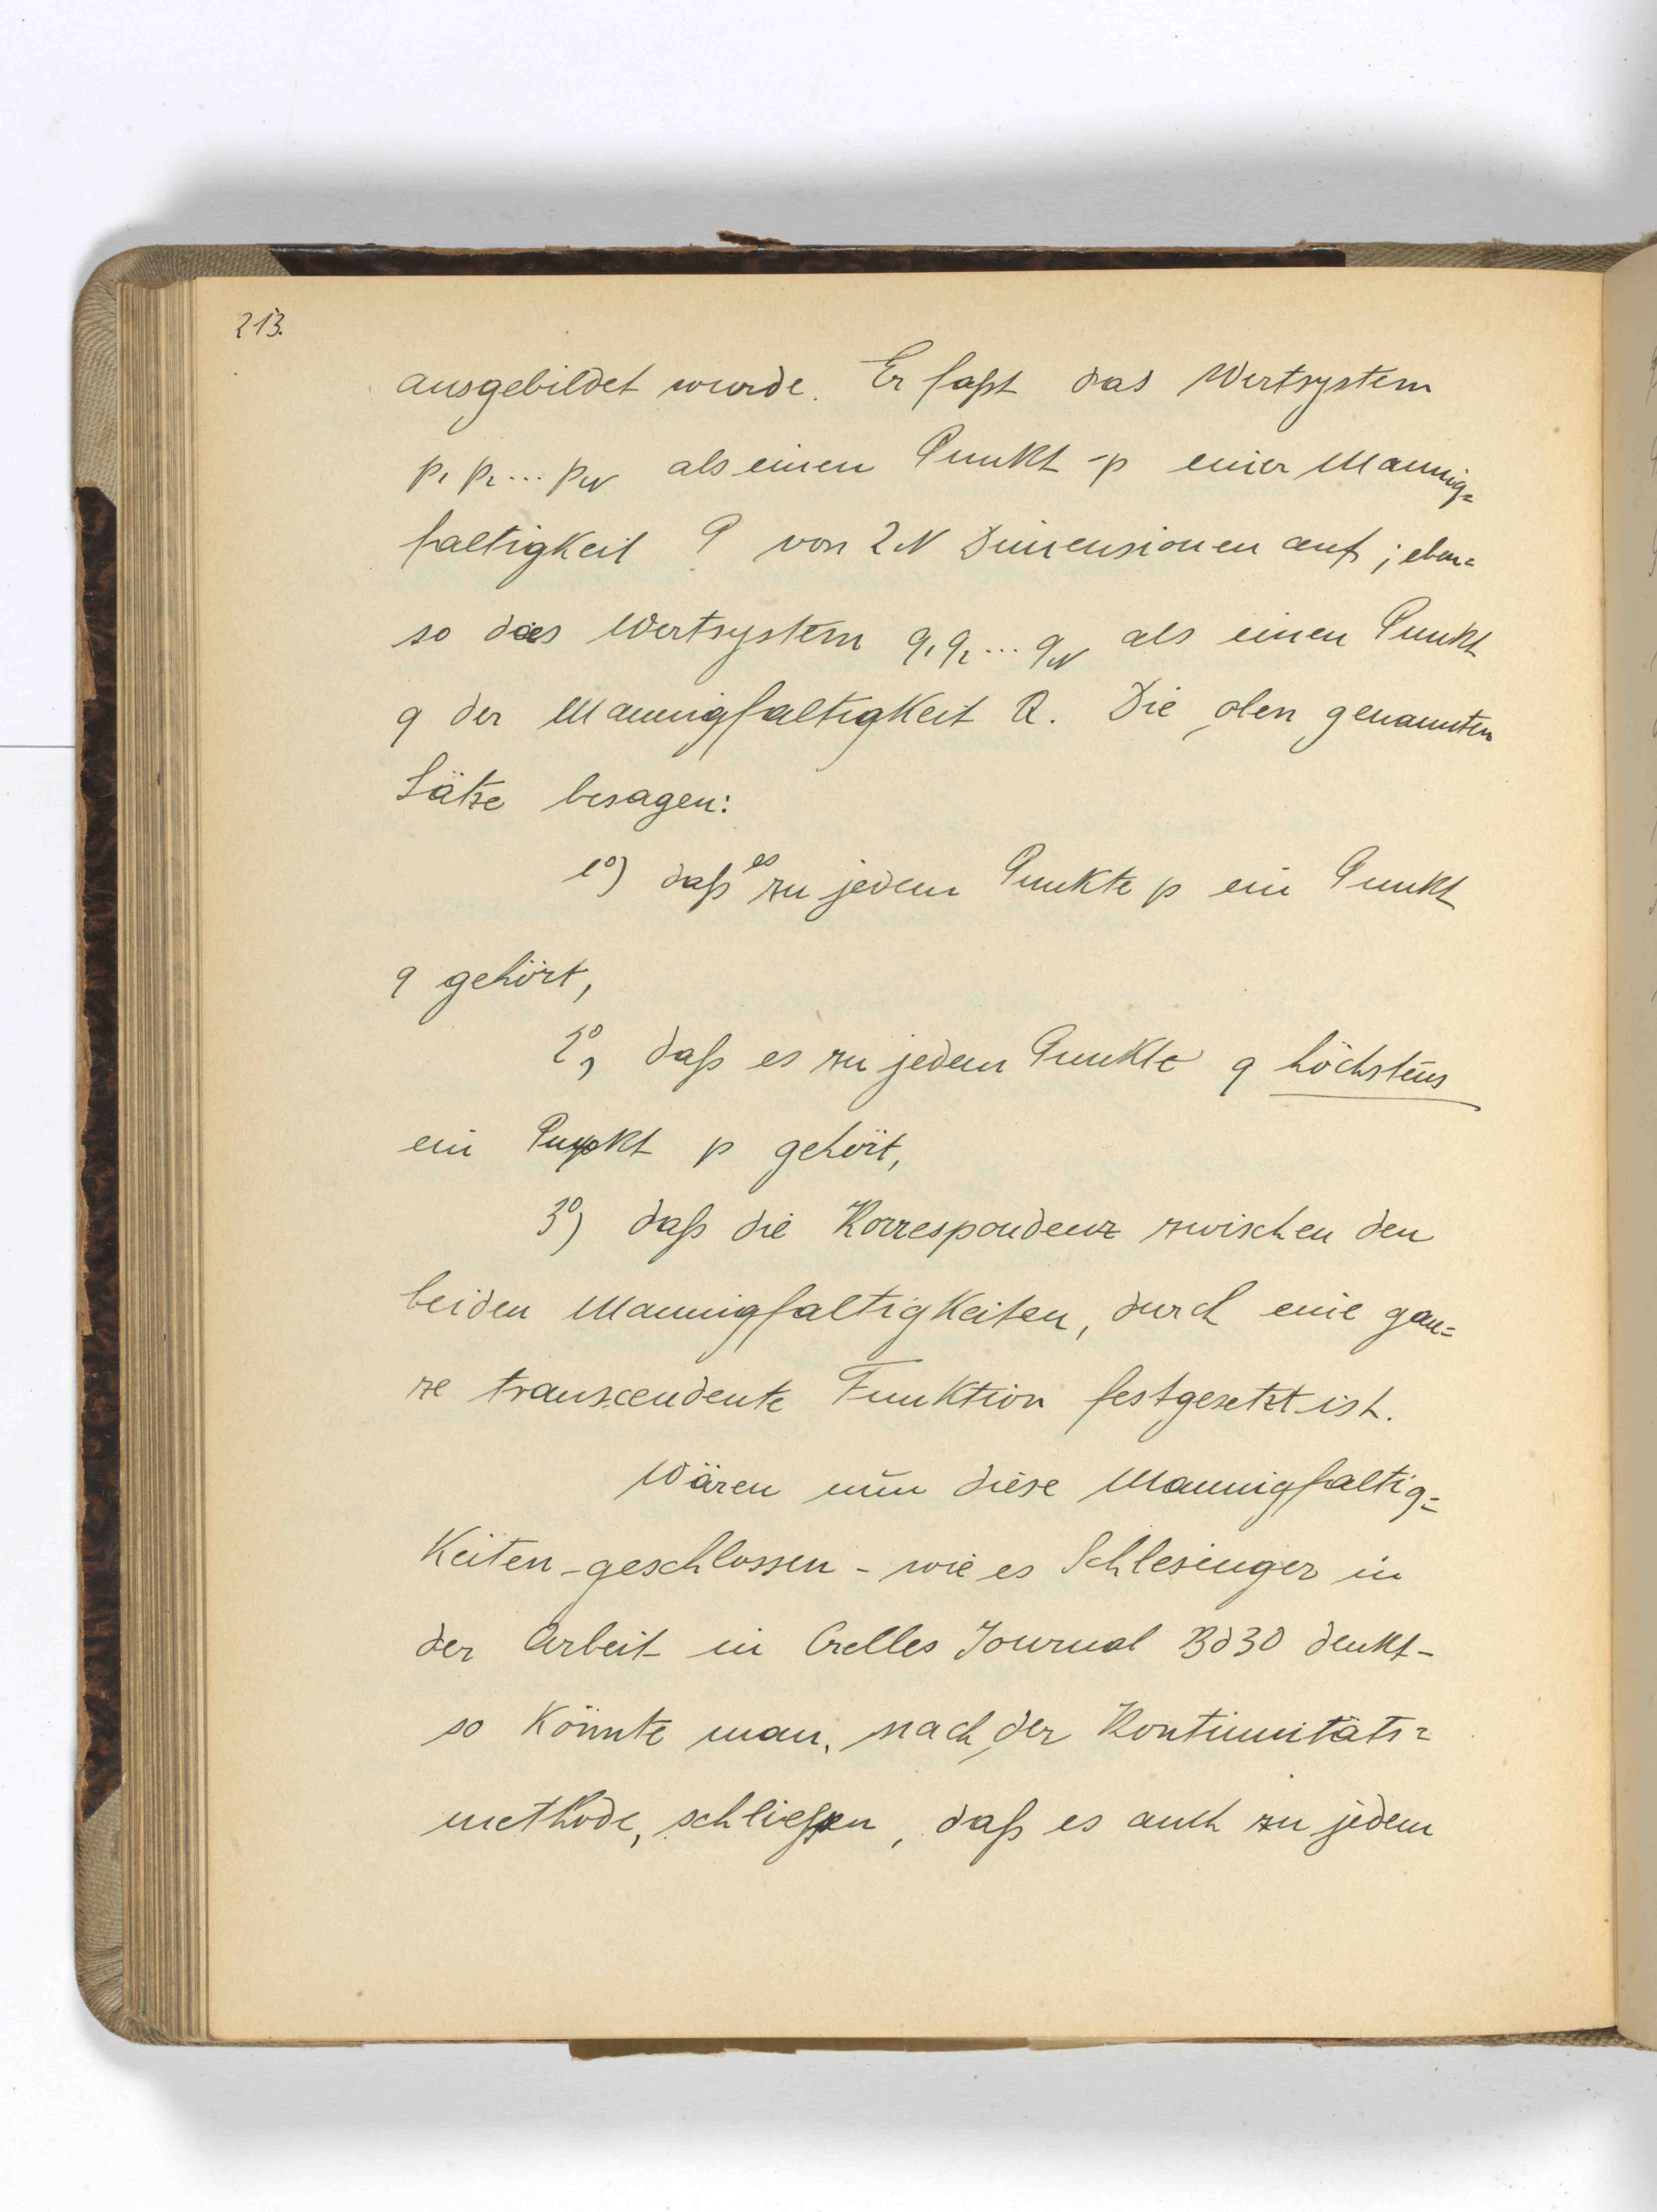 213.
ausgebildet wurde. Er faßt das Wertsystem
p₁ p₂ ... p_N als einen Punkt p einer Mannig=
faltigkeit P von 2N Dimensionen auf; eben=
so das Wertsystem q₁ q₂ ... q_N als einen Punkt
q der Mannigfaltigkeit Q. Die oben genannten
Sätze besagen:
1°) daß es zu jedem Punkte p ein Punkt
q gehört,
2°) daß es zu jedem Punkte q höchstens
ein Punkt p gehört,
3°) daß die Korrespondenz zwischen den
beiden Mannigfaltigkeiten, durch eine gan=
ze transcendente Funktion festgesetzt ist.
Wären nun diese Mannigfaltig=
keiten - geschlossen - wie es Schlesinger in
der Arbeit in Crelles Journal Bd 30 denkt -
so könnte man, nach der Kontinuitäts=
methode, schließen, daß es auch zu jedem